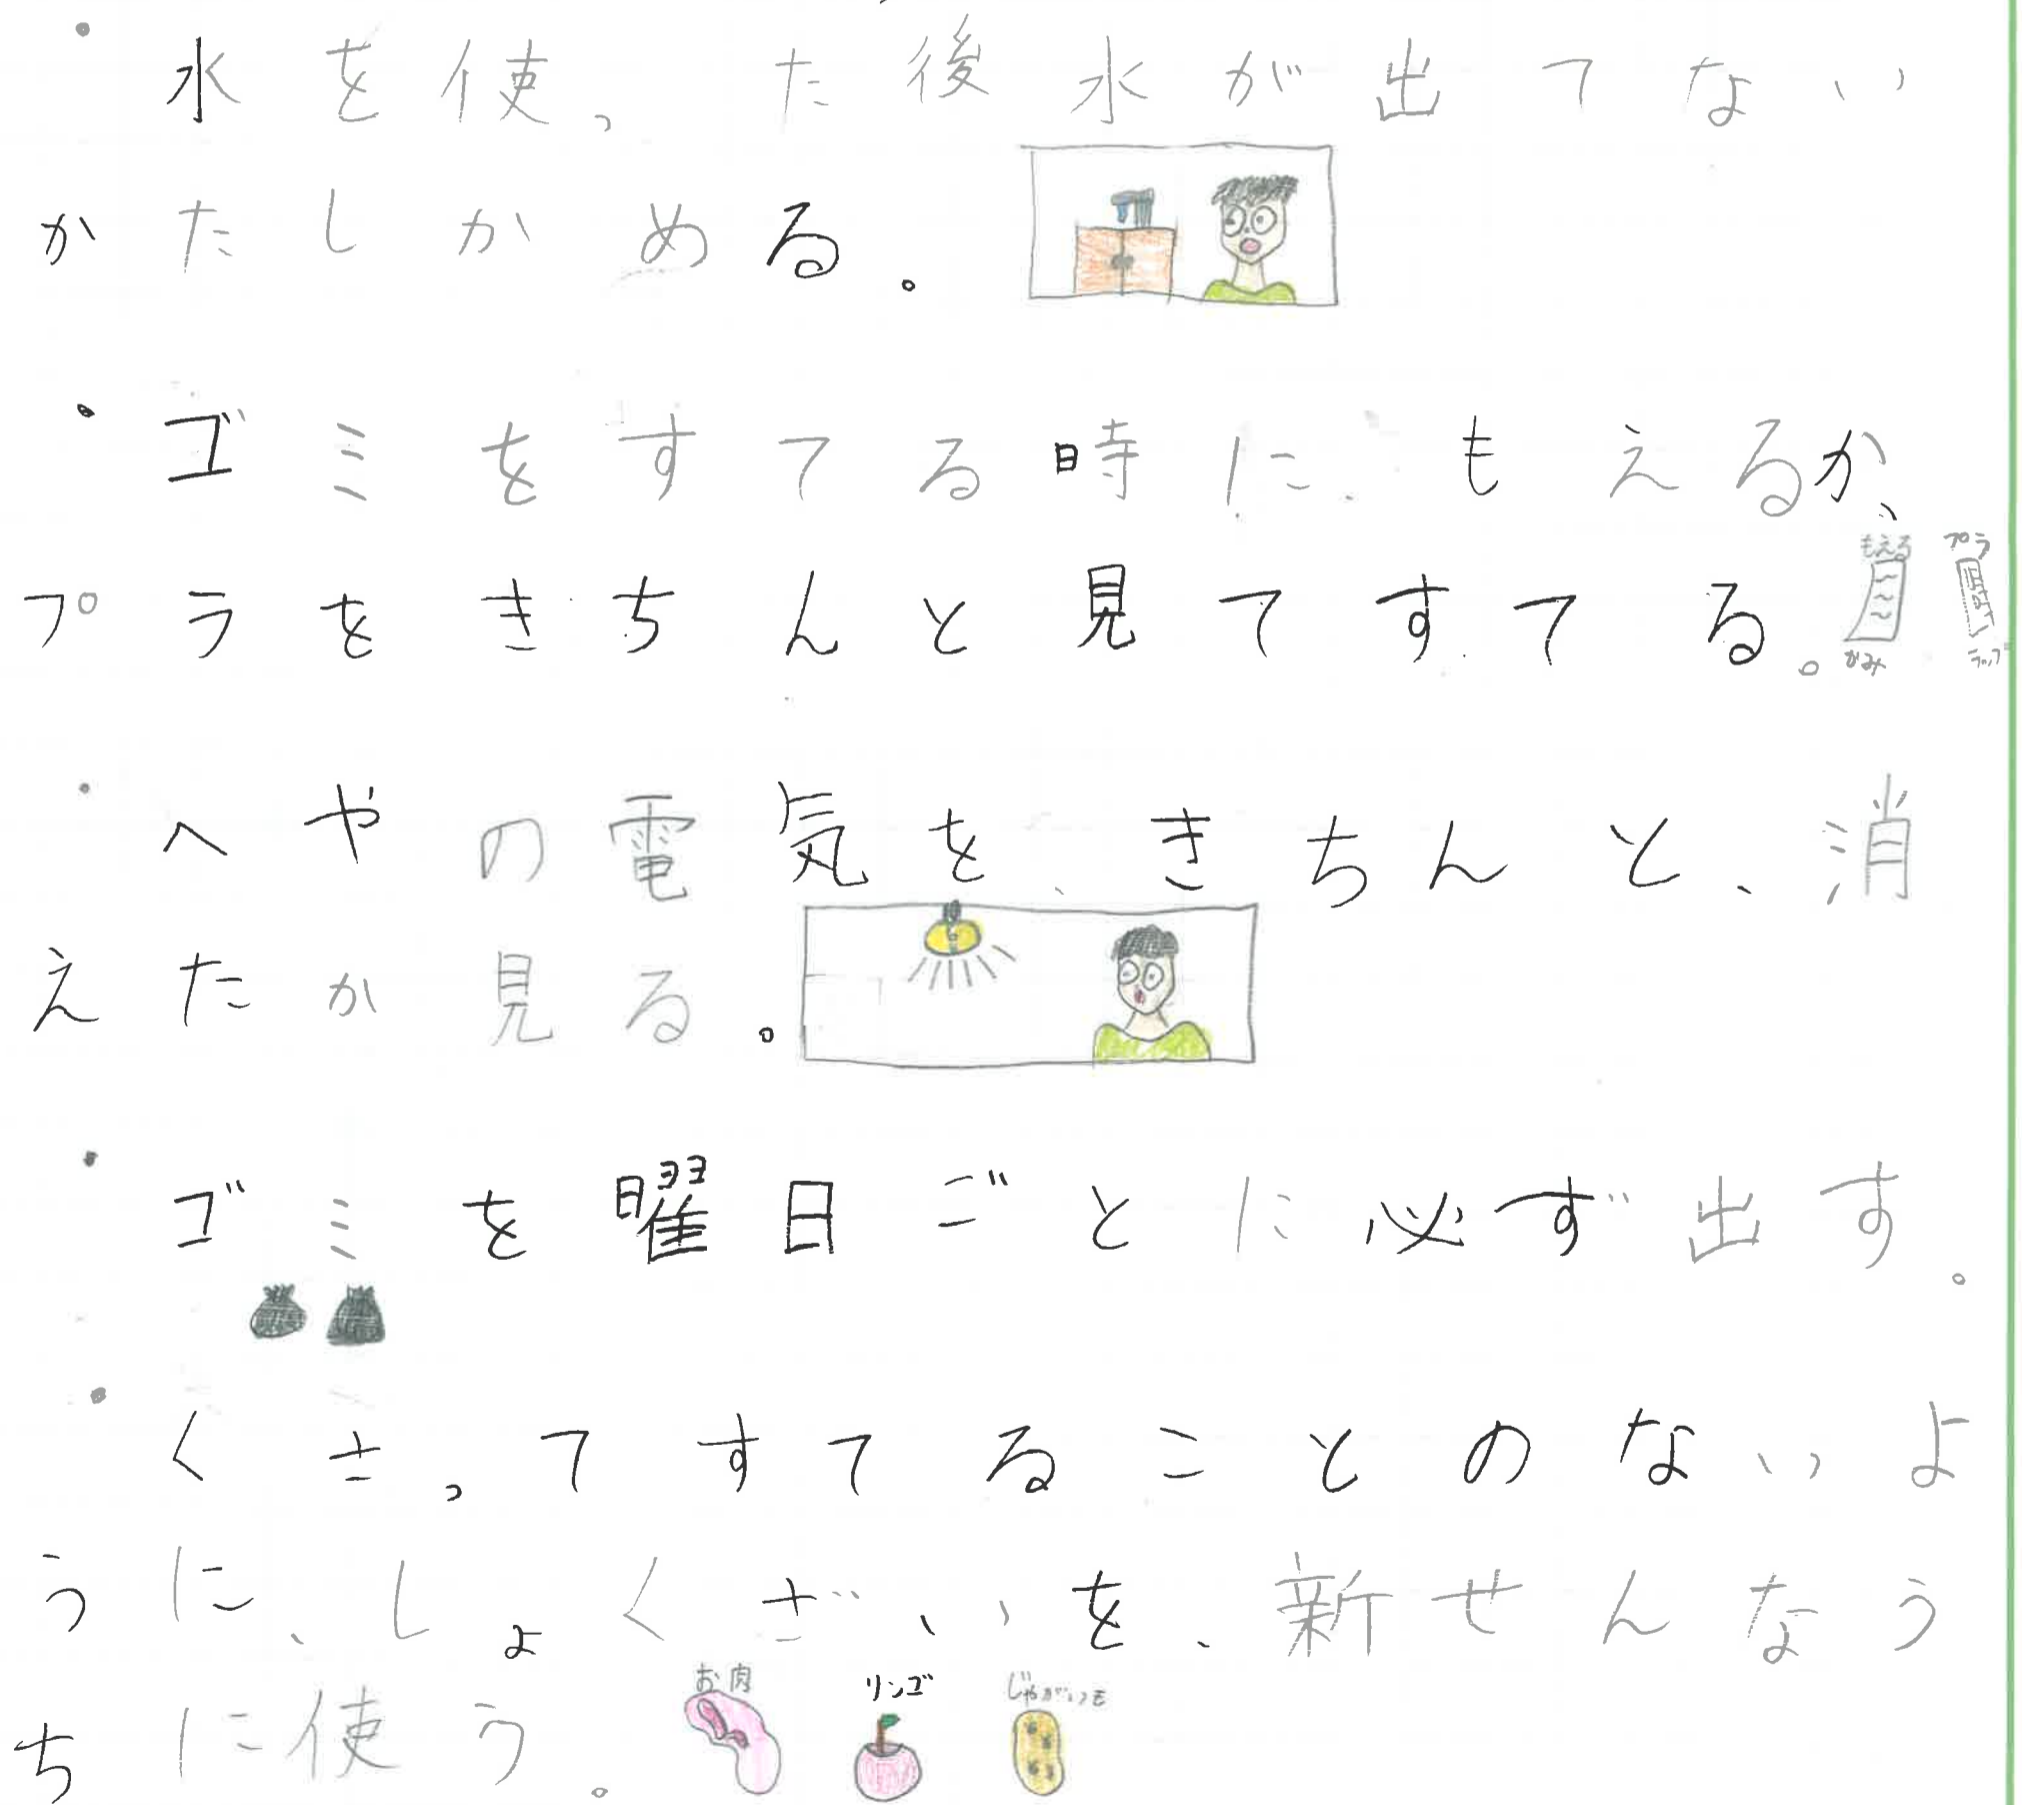 ・水を使った後水が出てない
かたしかめる。
・ゴミをすてる時に、もえるか、
プラをきちんと見てすてる。
もえる
かみ
プラ
ラップ
・へやの電気を、きちんと、消
えたか見る。
・ゴミを曜日ごとに必ず出す。
・くさってすてることのないよ
うに、しょくざいを、新せんなう
ちに使う。
お肉
リンゴ
じゃがいも